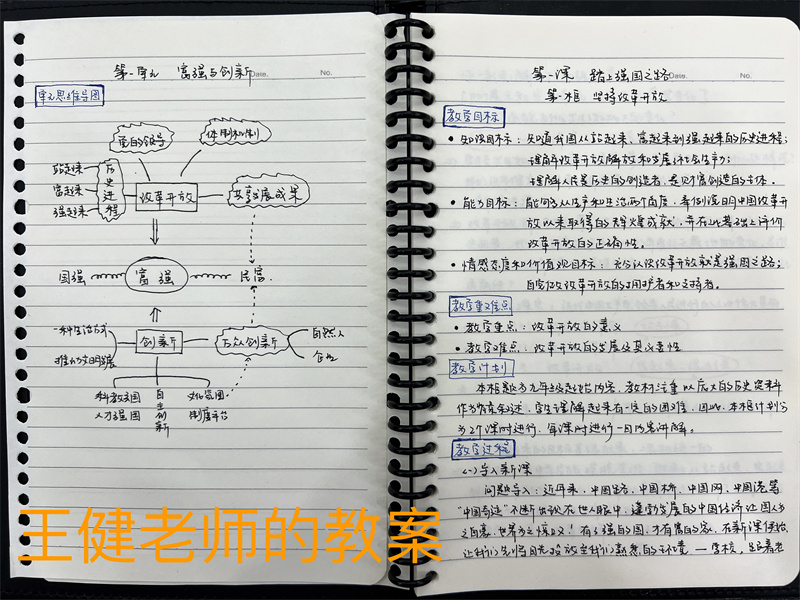 第一单元 富强与创新
Date.
No.
单元思维导图
党的领导
体制机制
站起来
富起来
强起来
历史进程
改革开放
共享发展成果
国强
富强
民富
一种生活方式
推动文明发展
创新
万众创新
自然人
企业
科教兴国
人才强国
自主创新
文化氛围
制度平台
王健老师的教案
第一课 踏上强国之路
Date.
No.
第一框 坚持改革开放
教学目标
• 知识目标：知道我国从站起来、富起来到强起来的历史进程；
理解改革开放解放和发展了社会生产力；
理解人民是历史的创造者，是财富创造的主体．
• 能力目标：能够从生产和生活两个角度，举例说明中国改革开
放以来取得的辉煌成就，并在此基础上评价
改革开放的正确性．
• 情感态度和价值观目标：充分认识改革开放就是强国之路；
自觉做改革开放的拥护者和支持者。
教学重难点
• 教学重点：改革开放的意义
• 教学难点：改革开放的发展及其必要性
教学计划
本框题为九年级起始内容，教材注重以历史资料
作为背景叙述，学生理解起来有一定的困难，因此，本框计划分
为2个课时进行，每课时进行一目内容讲解。
教学过程
(一)导入新课
问题导入：近年来，中国路、中国桥、中国网、中国港等
“中国奇迹”不断出现在世人眼中，蓬勃发展的中国经济让国人为
之自豪，世界为之惊叹！有了强的国，才有富的家，在新课伊始
让我们先将目光投放至我们熟悉的环境——学校，